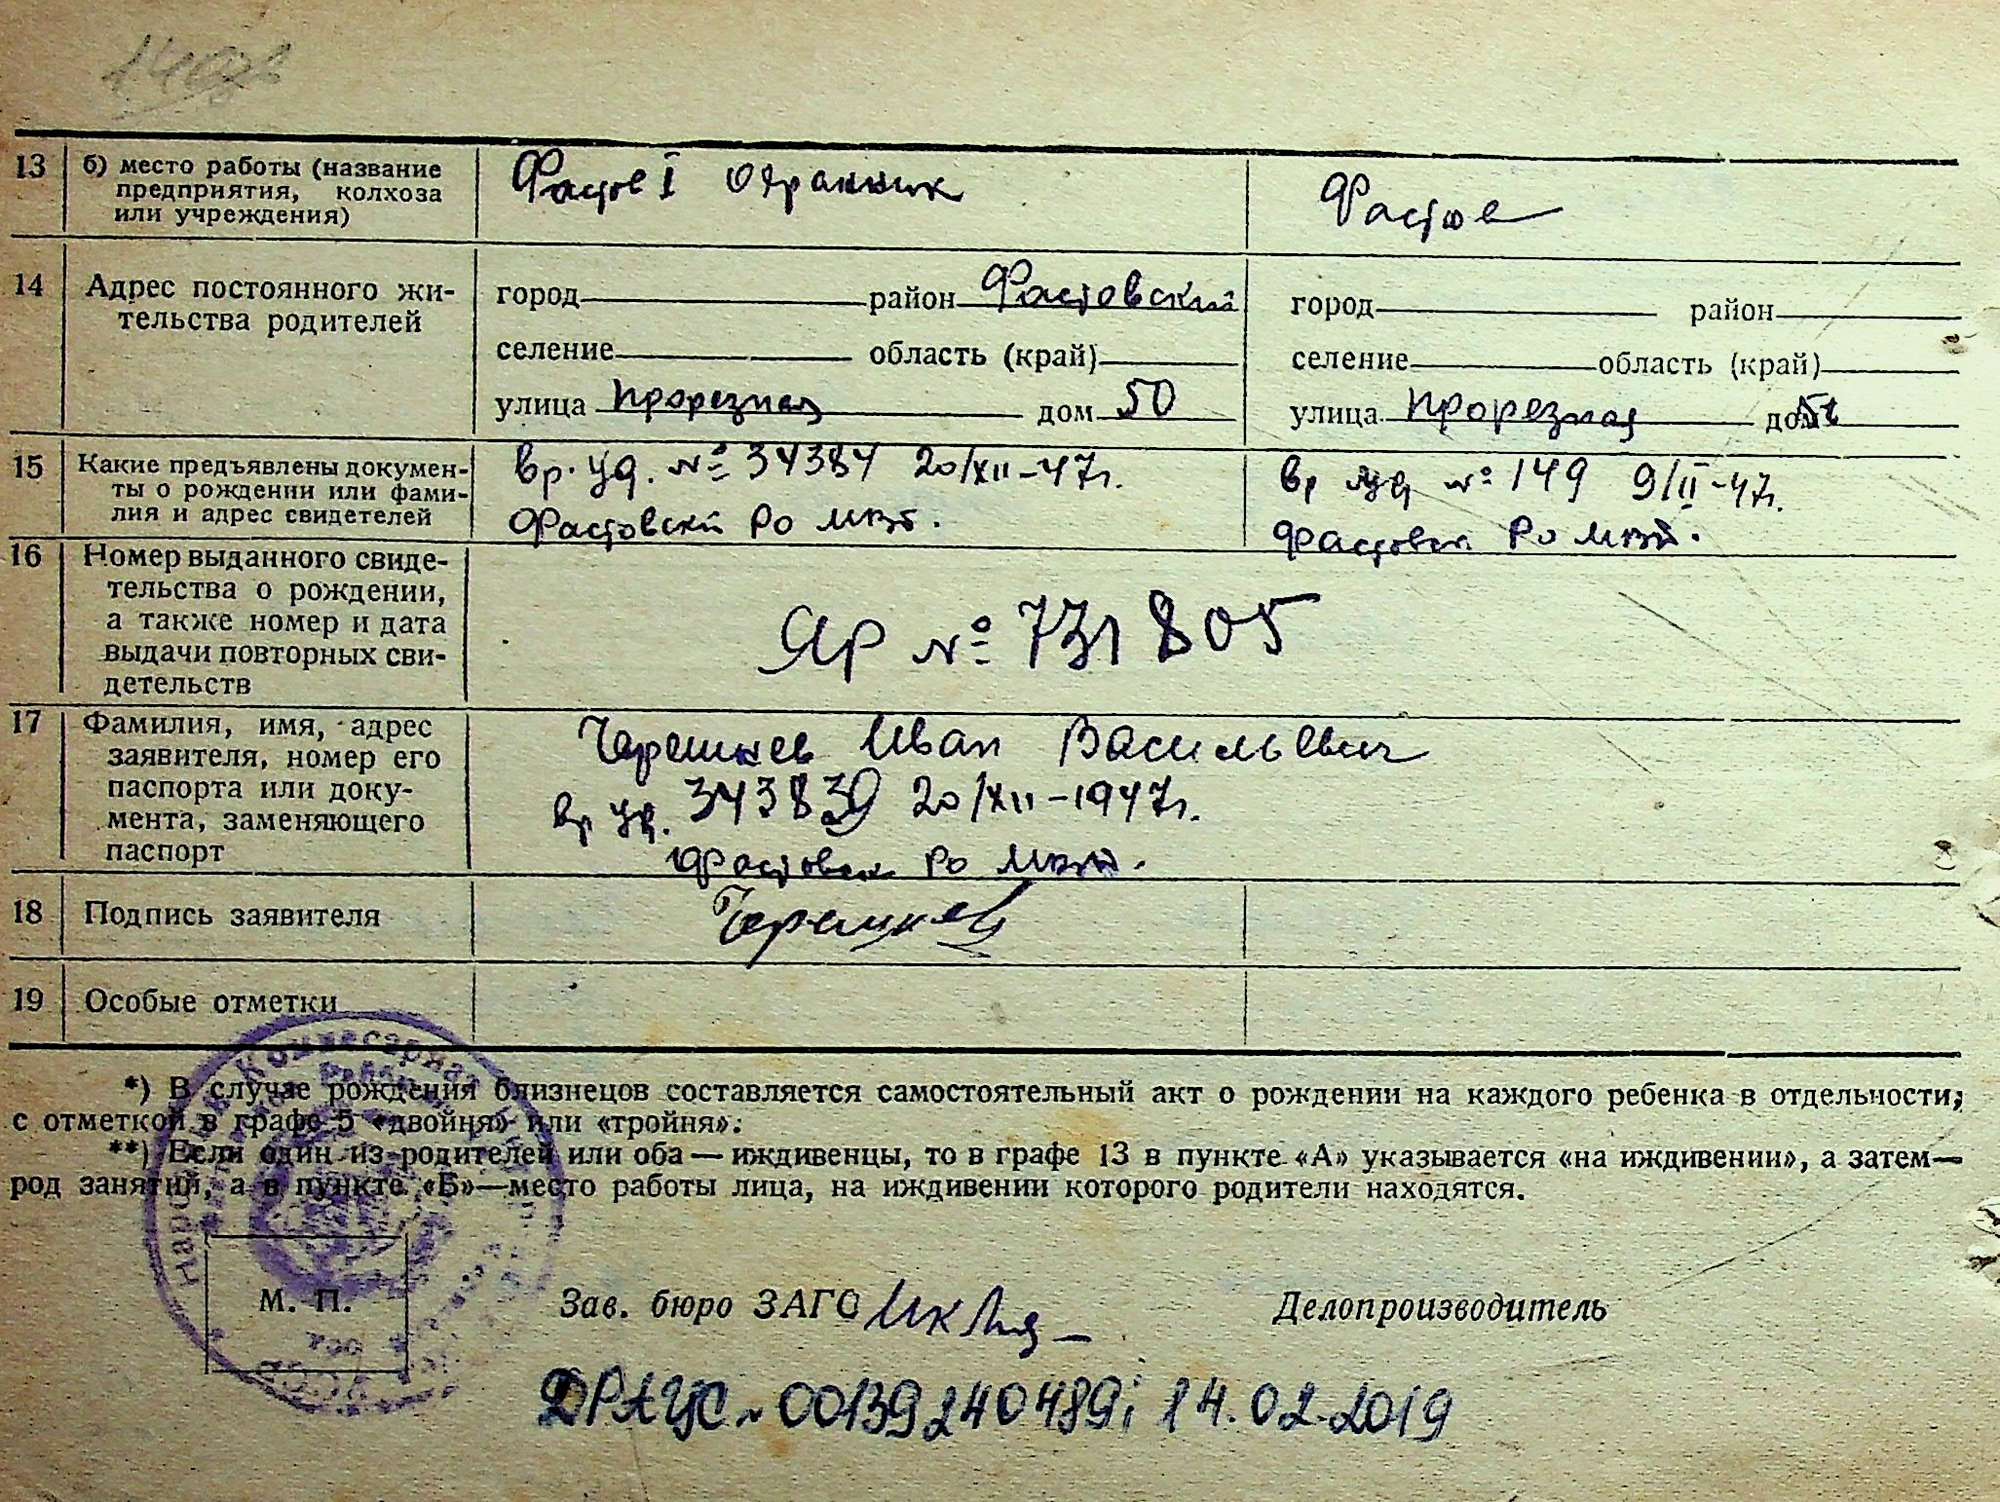 13 б) место работы (название
предприятия, колхоза
или учреждения)
Фастов I охранник
Фастов
14 Адрес постоянного жи-
тельства родителей
город район Фастовский
селение область (край)
улица Прорезная дом 50
город район
селение область (край)
улица Прорезная дом
15 Какие предъявлены докумен-
ты о рождении или фами-
лия и адрес свидетелей
вр. уд. № 34384 20/XII-47г.
Фастовский РО
вр уд № 149 9/II-47г.
РО
16 Номер выданного свиде-
тельства о рождении,
а также номер и дата
выдачи повторных сви-
детельств
ЯР № 731805
17 Фамилия, имя, адрес
заявителя, номер его
паспорта или доку-
мента, заменяющего
паспорт
Черешнев Иван Васильевич
вр уд. 343839 20/XII-1947г.
РО
18 Подпись заявителя
Черешнев
19 Особые отметки
*) В случае рождения близнецов составляется самостоятельный акт о рождении на каждого ребенка в отдельности,
с отметкой в графе 5 «двойня» или «тройня».
**) Если один из родителей или оба — иждивенцы, то в графе 13 в пункте «А» указывается «на иждивении», а затем—
род занятий, а в пункте «Б»—место работы лица, на иждивении которого родители находятся.
М. П.
Зав. бюро ЗАГС
Делопроизводитель
ДРАЦС № 00139240489; 14.02.2019